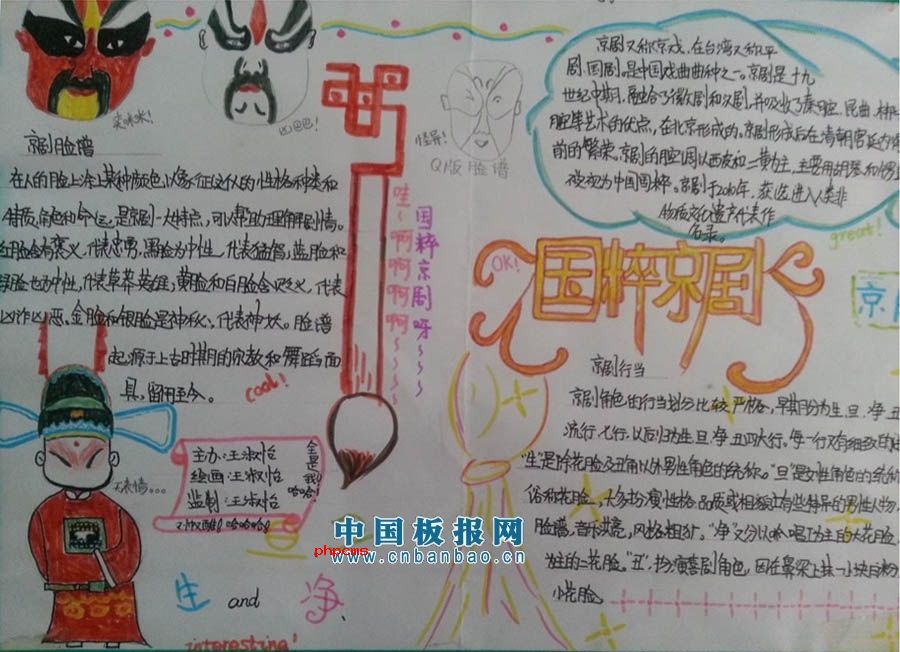 笑咪咪!
凶巴巴!
京剧脸谱
在人的脸上涂上某种颜色以象征这个人的性格种类和
特质,角色和命运,是京剧一大特点,可以帮助理解剧情。
红脸含有褒义,代表忠勇,黑脸为中性,代表猛智,蓝脸和
绿脸也为中性,代表草莽英雄,黄脸和白脸含贬义,代表
凶诈凶恶,金脸和银脸是神秘,代表神妖。脸谱
起源于上古时期的宗教和舞蹈面
具,留用至今。
cool!
怪异!
Q版脸谱
国粹京剧呀~~~~
哇~啊啊啊啊~~~~
京剧又称京戏,在台湾又称平
剧、国剧。是中国戏曲曲种之一。京剧是十九
世纪中期,融合了徽剧和汉剧,并吸收了秦腔、昆曲、梆
腔等艺术的优点,在北京形成的。京剧形成后在清朝宫廷内
前的繁荣。京剧的腔调以西皮和二黄为主,主要用胡琴和锣
被视为中国国粹。京剧于2010年,获选进入人类非
物质文化遗产代表作
名录。
great!
OK!
国粹京剧
京
京剧行当
京剧角色的行当划分比较严格,早期分为生、旦、净、丑
流行、七行,以后归为生、旦、净、丑四大行,每一行又有细致的
“生”是除花脸及丑角以外男性角色的统称。“旦”是女性角色的统称
俗称花脸,大多扮演性格、品质或相貌上有些特异的男性人物,
脸谱,音乐洪亮,风格粗犷。“净”又分以唱为主的大花脸,
为主的二花脸。“丑”,扮演喜剧角色,因在鼻梁上抹一小块白粉
小花脸
主办:王淑怡
绘画:王淑怡
监制:王淑怡
哈哈哈!
全是我!
哈哈!
无表情...
生 and 净
interesting!
中国板报网
phpcms
www.cnbanbao.cn